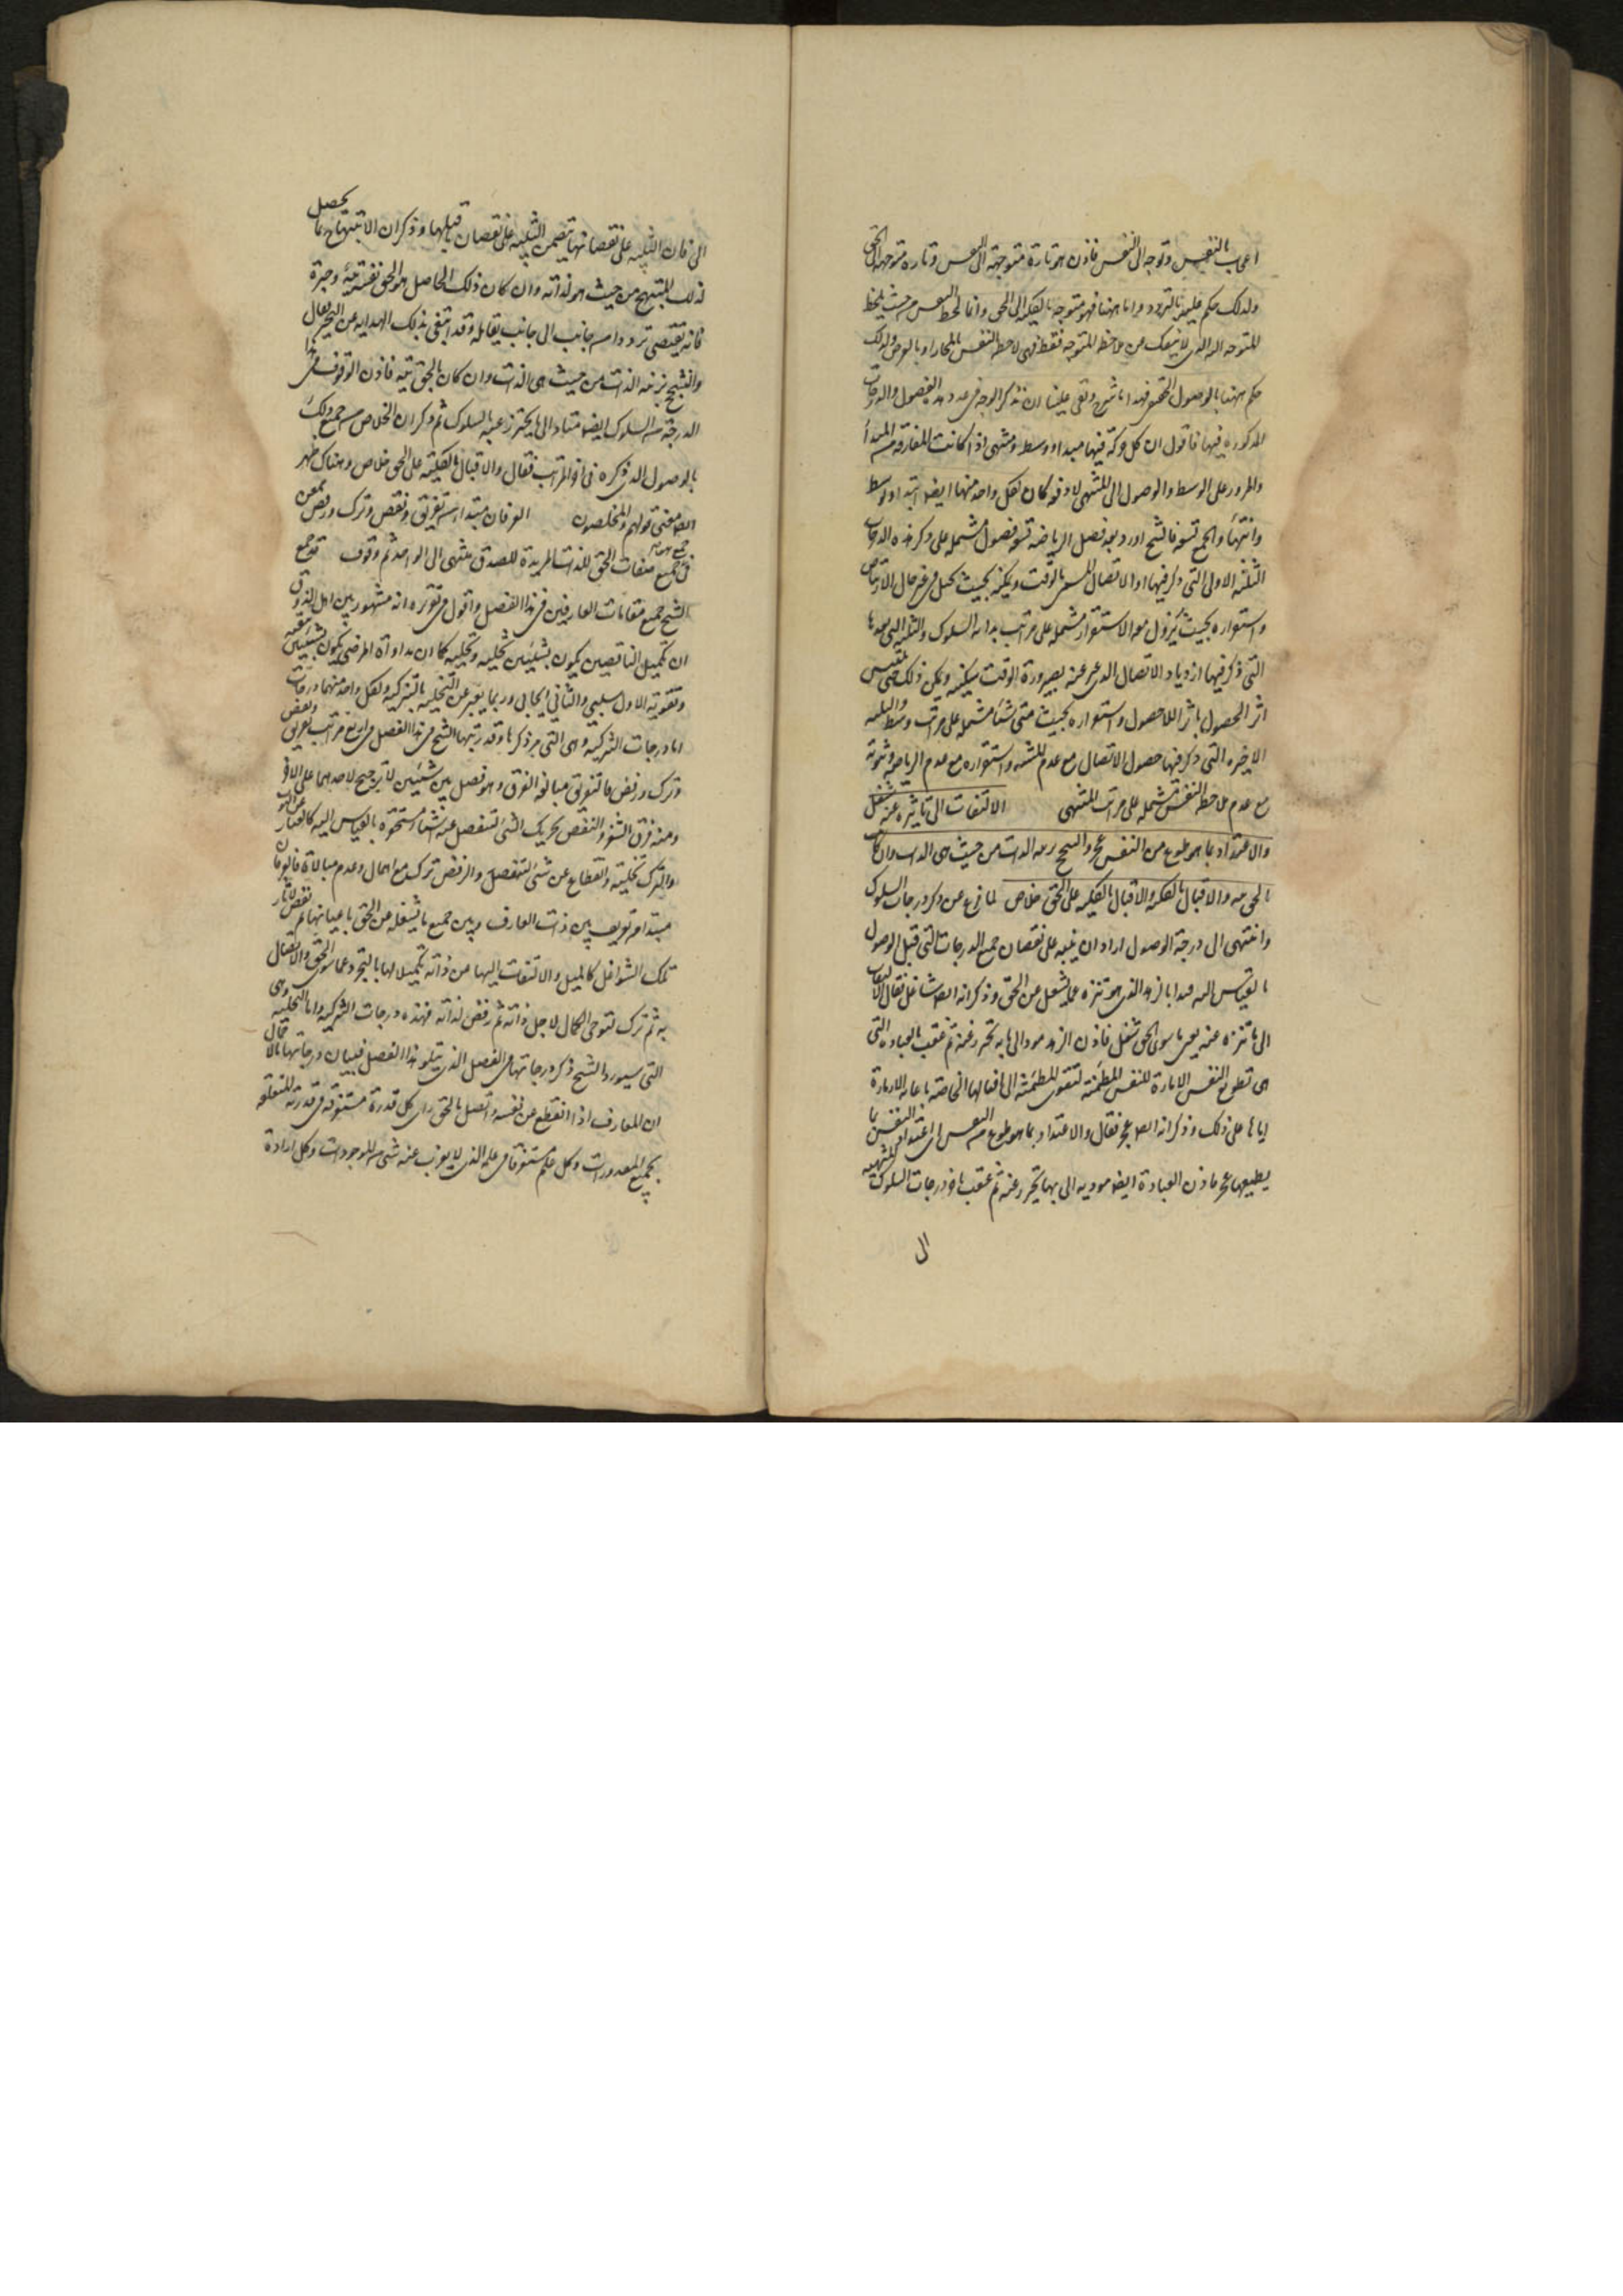 اعجاب بالنفس وتوجه الى النفس فاذن هو تارة متوجهة الى النفس وتارة متوجهة الى الحق
ولذلك حكم عليه بالتردد واما ههنا فهو متوجه بالكلية الى الحق وانما لحظ النفس من حيث يلحظ
المتوجه اليه الذى لا ينفك من ملاحظة المتوجه فقط فهى لاحظ النفس بالمجاز او بالعرض ولذلك
حكم ههنا بالوصول الحقيقى فهذا ما شرح وبقى علينا ان نذكر الوجه فى عدد هذه الفصول والدرجات
المذكورة فيها فاقول ان كل حركة فيها مبدا ووسط ومنتهى اذا كانت المفارقة من المبدأ
والمرور على الوسط والوصول الى المنتهى لا دفعة كان لكل واحد منها ايضا ابتداء ووسط
وانتهاء والجميع تسعة فالشيخ اورد بعد فصل الرياضة تسعة فصول مشتملة على ذكر هذه الدرجات
الثلثة الاولى التى ذكر فيها اول الاتصال المسمى بالوقت وتمكنه بحيث يحصل فى غير حال الارتياض
واستقراره بحيث يزول معه الاستقرار مشتملة على مراتب بداية السلوك والثلثة التى بعدها
التى ذكر فيها ازدياد الاتصال الذى عبر عنه بصيرورة الوقت سكينة وتمكن ذلك حتى يلتبس
اثر الحصول باثر اللاحصول واستقراره بحيث متى شاء مشتملة على مراتب وسطه والثلثة
الاخيرة التى ذكر فيها حصول الاتصال مع عدم المشية واستقراره مع عدم الرياضة وثبوته
مع عدم ملاحظة النفس مشتملة على مراتب المنتهى الالتفات الى ما تنزه عنه شغل
والاعتداد بما هو طوع من النفس عجز والتبجح بزينة الذات من حيث هى الذات وان كان
بالحق تيه والاقبال بالكلية على الحق خلاص لما فرغ عن ذكر درجات السلوك
وانتهى الى درجة الوصول اراد ان ينبه على نقصان جميع الدرجات التى قبل الوصول
بالقياس اليه فبدا بالزهد الذى هو تنزه عما يشغل عن الحق وذكر انه ايضا شاغل فقال الالتفات
الى ما تنزه عنه يعنى ما سوى الحق شغل فاذن الزهد مود الى ما به تحترز عنه ثم عقب بالعبادة التى
هى تطويع النفس الامارة للنفس المطمئنة لتقوى المطمئنة الى افعالها الخاصة باعانة الامارة
اياها على ذلك وذكر انه ايضا عجز فقال والاعتداد بما هو طوع من النفس اى اعتداد النفس بما
يطيعها عجز فاذن العبادة ايضا مودية الى ما بها تحترز عنه ثم عقب باخر درجات السلوك المنتهية
الى
الى فان التنبيه على نقصانها يتضمن التنبيه على نقصان ما قبلها وذكر ان الابتهاج بما يحصل
لذلك المبتهج من حيث هو لذاته وان كان ذلك الحاصل هو الحق نفسه تيه وحيرة
فانه يقتضى ترددا من جانب الى جانب يقابله وقد ابتغى بذلك الهداية عن التحير فقال
والتبجح بزينة الذات من حيث هى الذات وان كان بالحق تيه فاذن الوقوف فى هذا
الدرجة من السلوك ايضا متاد الى ما يحترز عنه بالسلوك ثم ذكر ان الخلاص من جميع ذلك
بالوصول الذى ذكره فى اخر المراتب فقال والاقبال بالكلية على الحق خلاص وهناك ظهر
ايضا معنى قولهم والمخلصون العرفان مبتدا من تفريق ونقض وترك ورفض ممعن
فى جمع هو جميع صفات الحق للذات المريدة للصدق منتهى الى الواحد ثم وقوف قد جمع
الشيخ جميع مقامات العارفين فى هذا الفصل واقول فى تقريره انه مشهور بين اهل الذوق
ان تكميل الناقصين يكون بشيئين تخلية وتحلية كما ان مداواة المرضى يكون بشيئين تنقية
وتقوية الاول سلبى والثانى ايجابى وربما يعبر عن التخلية بالتزكية ولكل واحد منهما درجات
اما درجات التزكية وهى التى مر ذكرها وقد رتبها الشيخ فى هذا الفصل فى اربع مراتب تفريق ونقض
وترك ورفض فالتفريق مبالغة الفرق وهو فصل بين شيئين لا ترجيح لاحدهما على الاخر
ومنه فرق الشعر والنقض تحريك الشى لتنفصل عنه اشياء مستحقرة بالقياس اليه كالغبار عن الثوب
والترك تخلية وانقطاع عن شى لتنفصل والرفض ترك مع اهمال وعدم مبالاة فالعرفان
مبتدا من تفريق بين ذات العارف وبين جميع ما يشغله عن الحق باعيانها ثم نقض لاثار
تلك الشواغل كالميل والالتفات اليها عن ذاته تكميلا لها بالتجرد عما سوى الحق والاتصال
به ثم ترك لتوخى الكمال لاجل ذاته ثم رفض لذاته فهذه درجات التزكية واما التحلية وهى
التى سيورد الشيخ ذكر درجاتها فى الفصل الذى يتلو هذا الفصل فبيان درجاتها بالاجمال
ان العارف اذا انقطع عن نفسه واتصل بالحق راى كل قدرة مستغرقة فى قدرته المتعلقة
بجميع المقدورات وكل علم مستغرقا فى علمه الذى لا يعزب عنه شى من الموجودات وكل ارادة